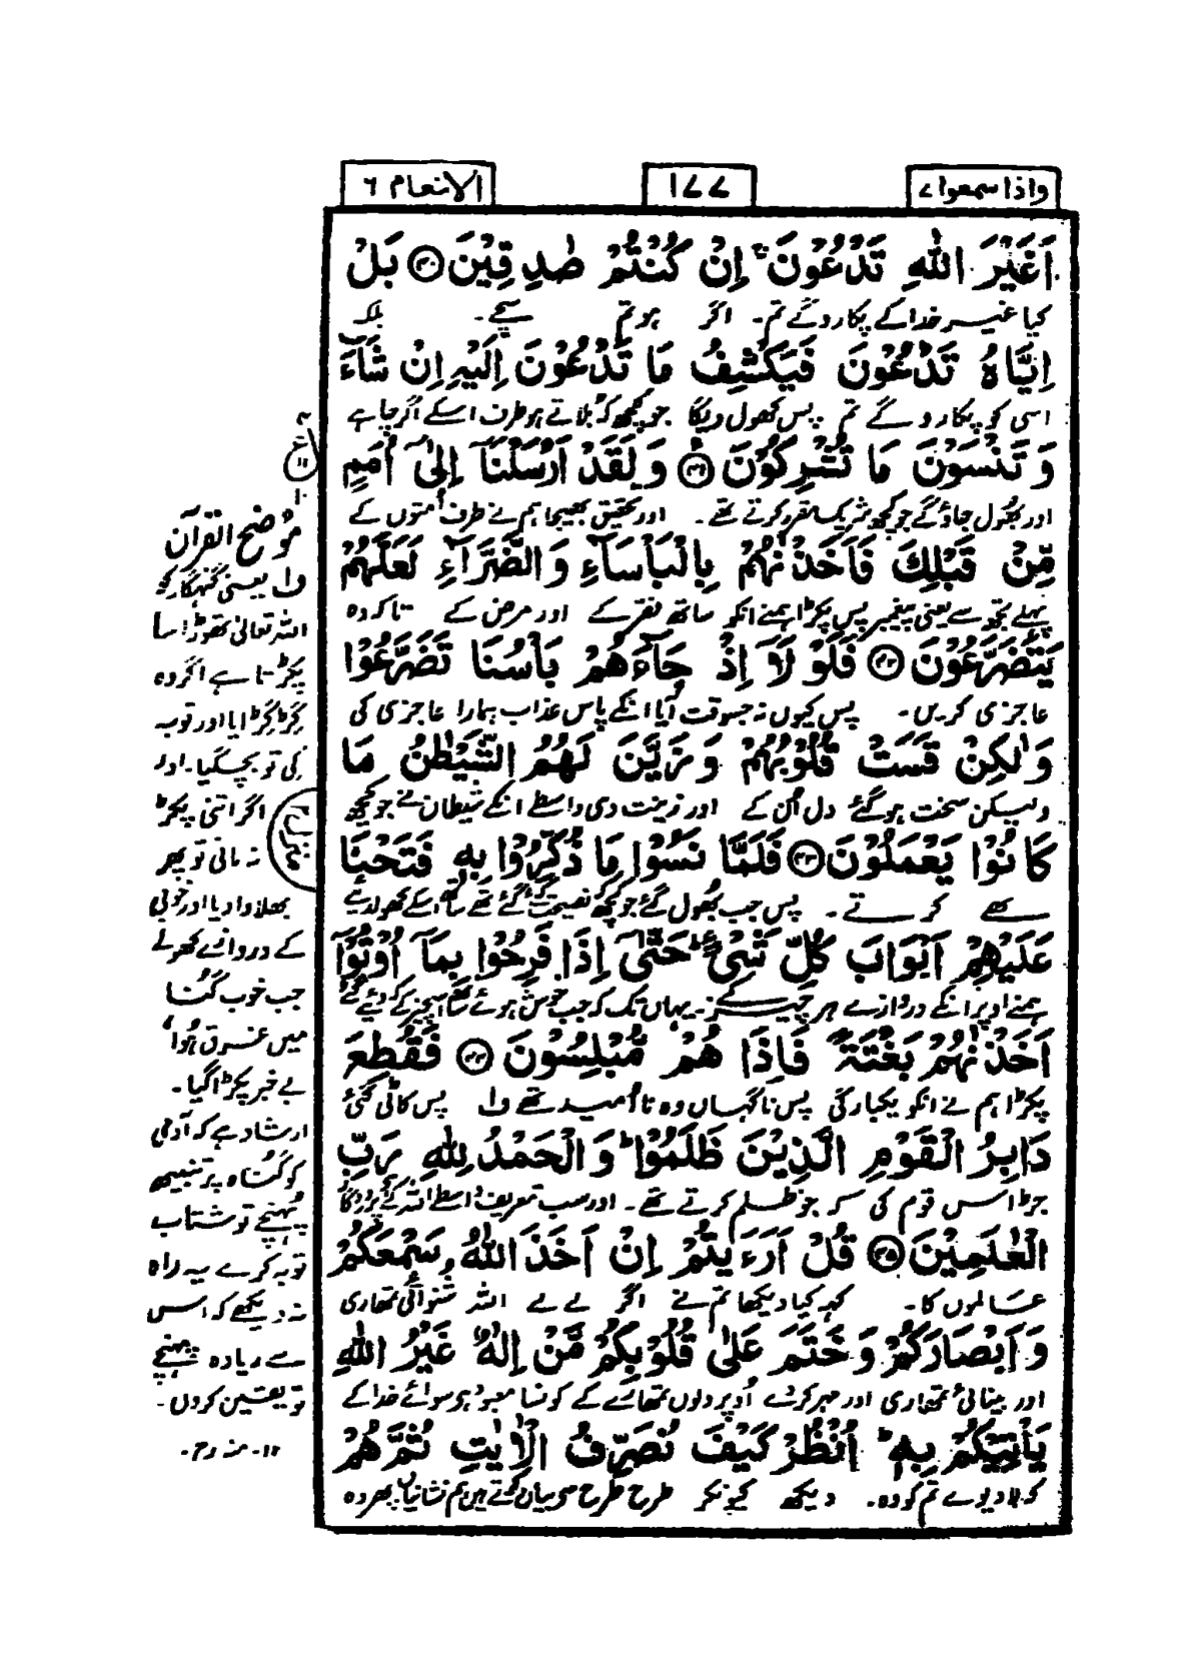 واذا سمعوا ٧
١٧٧
الانعام ٦
اَغَيْرَ اللّٰهِ تَدْعُوْنَ ۚ اِنْ كُنْتُمْ صٰدِقِيْنَ ﴿۴۰﴾ بَلْ
کیا غیر خدا کے پکارو گے تم۔ اگر ہو تم سچے۔ بلکہ
اِيَّاهُ تَدْعُوْنَ فَيَكْشِفُ مَا تَدْعُوْنَ اِلَيْهِ اِنْ شَآءَ
اسی کو پکارو گے تم پس کھول دیگا جو کچھ کہ بلاتے ہو طرف اسکے اگر چاہے
وَ تَنْسَوْنَ مَا تُشْرِكُوْنَ ﴿۴۱﴾ وَ لَقَدْ اَرْسَلْنَآ اِلٰٓى اُمَمٍ
اور بھول جاؤ گے جو کچھ شریک مقرر کرتے تھے۔ اور تحقیق بھیجا ہم نے طرف اُمتوں کے
مِّنْ قَبْلِكَ فَاَخَذْنٰهُمْ بِالْبَاْسَآءِ وَ الضَّرَّآءِ لَعَلَّهُمْ
پہلے تجھ سے یعنی پیغمبر پس پکڑا ہمنے انکو ساتھ فقر کے اور مرض کے تاکہ وہ
يَتَضَرَّعُوْنَ ﴿۴۲﴾ فَلَوْ لَآ اِذْ جَآءَهُمْ بَاْسُنَا تَضَرَّعُوْا
عاجزی کریں۔ پس کیوں نہ جسوقت آیا انکے پاس عذاب ہمارا عاجزی کی
وَ لٰكِنْ قَسَتْ قُلُوْبُهُمْ وَ زَيَّنَ لَهُمُ الشَّيْطٰنُ مَا
ولیکن سخت ہو گئے دل اُن کے اور زینت دی واسطے انکے شیطان نے جو کچھ
كَانُوْا يَعْمَلُوْنَ ﴿۴۳﴾ فَلَمَّا نَسُوْا مَا ذُكِّرُوْا بِهٖ فَتَحْنَا
تھے کرتے۔ پس جب بھول گئے جو کچھ نصیحت کئے گئے تھے ساتھ اسکے کھولدیئے
عَلَيْهِمْ اَبْوَابَ كُلِّ شَيْءٍ ؕ حَتّٰٓى اِذَا فَرِحُوْا بِمَآ اُوْتُوْٓا
ہمنے اوپر انکے دروازے ہر چیز کے۔ یہاں تک کہ جب خوش ہوئے ساتھ اسچیز کے کہ دیئے گئے
اَخَذْنٰهُمْ بَغْتَةً فَاِذَا هُمْ مُّبْلِسُوْنَ ﴿۴۴﴾ فَقُطِعَ
پکڑا ہم نے انکو یکبارگی پس ناگہاں وہ ناامید تھے ف۱ پس کاٹی گئی
دَابِرُ الْقَوْمِ الَّذِيْنَ ظَلَمُوْا ؕ وَ الْحَمْدُ لِلّٰهِ رَبِّ
جڑ اس قوم کی کہ جو ظلم کرتے تھے۔ اور سب تعریف واسطے اللہ کے پروردگار
الْعٰلَمِيْنَ ﴿۴۵﴾ قُلْ اَرَءَيْتُمْ اِنْ اَخَذَ اللّٰهُ سَمْعَكُمْ
عالموں کا۔ کہہ کیا دیکھا تم نے اگر لے لے اللہ شنوائی تمھاری
وَ اَبْصَارَكُمْ وَ خَتَمَ عَلٰى قُلُوْبِكُمْ مَّنْ اِلٰهٌ غَيْرُ اللّٰهِ
اور بینائی تمھاری اور مہر کردے اُوپر دلوں تمھارے کے کونسا معبود ہے سوائے خدا کے
يَاْتِيْكُمْ بِهٖ ؕ اُنْظُرْ كَيْفَ نُصَرِّفُ الْاٰيٰتِ ثُمَّ هُمْ
کہ لا دیوے تم کو وہ۔ دیکھ کیونکر طرح طرح سے بیان کرتے ہیں ہم نشانیاں پھر وہ
ع
١١
١٠
مُوضح القرآن
ف۱ یعنی گنہگار کو
اللہ تعالیٰ تھوڑا سا
پکڑتا ہے اگر وہ
گڑگڑایا اور توبہ
کی تو بچ گیا۔ اور
اگر اتنی پکڑ
نہ مانی تو پھر
بھلاوا دیا اور خوبی
کے دروازے کھولے
جب خوب گنا
میں غرق ہُوا
بے خبر پکڑا گیا۔
ارشاد ہے کہ آدمی
کو گناہ پر تنبیہہ
پہنچے تو شتاب
توبہ کرے یہ راہ
نہ دیکھے کہ اس
سے زیادہ پہنچے
تو یقین کروں۔
۱۲۔ منہ رح۔